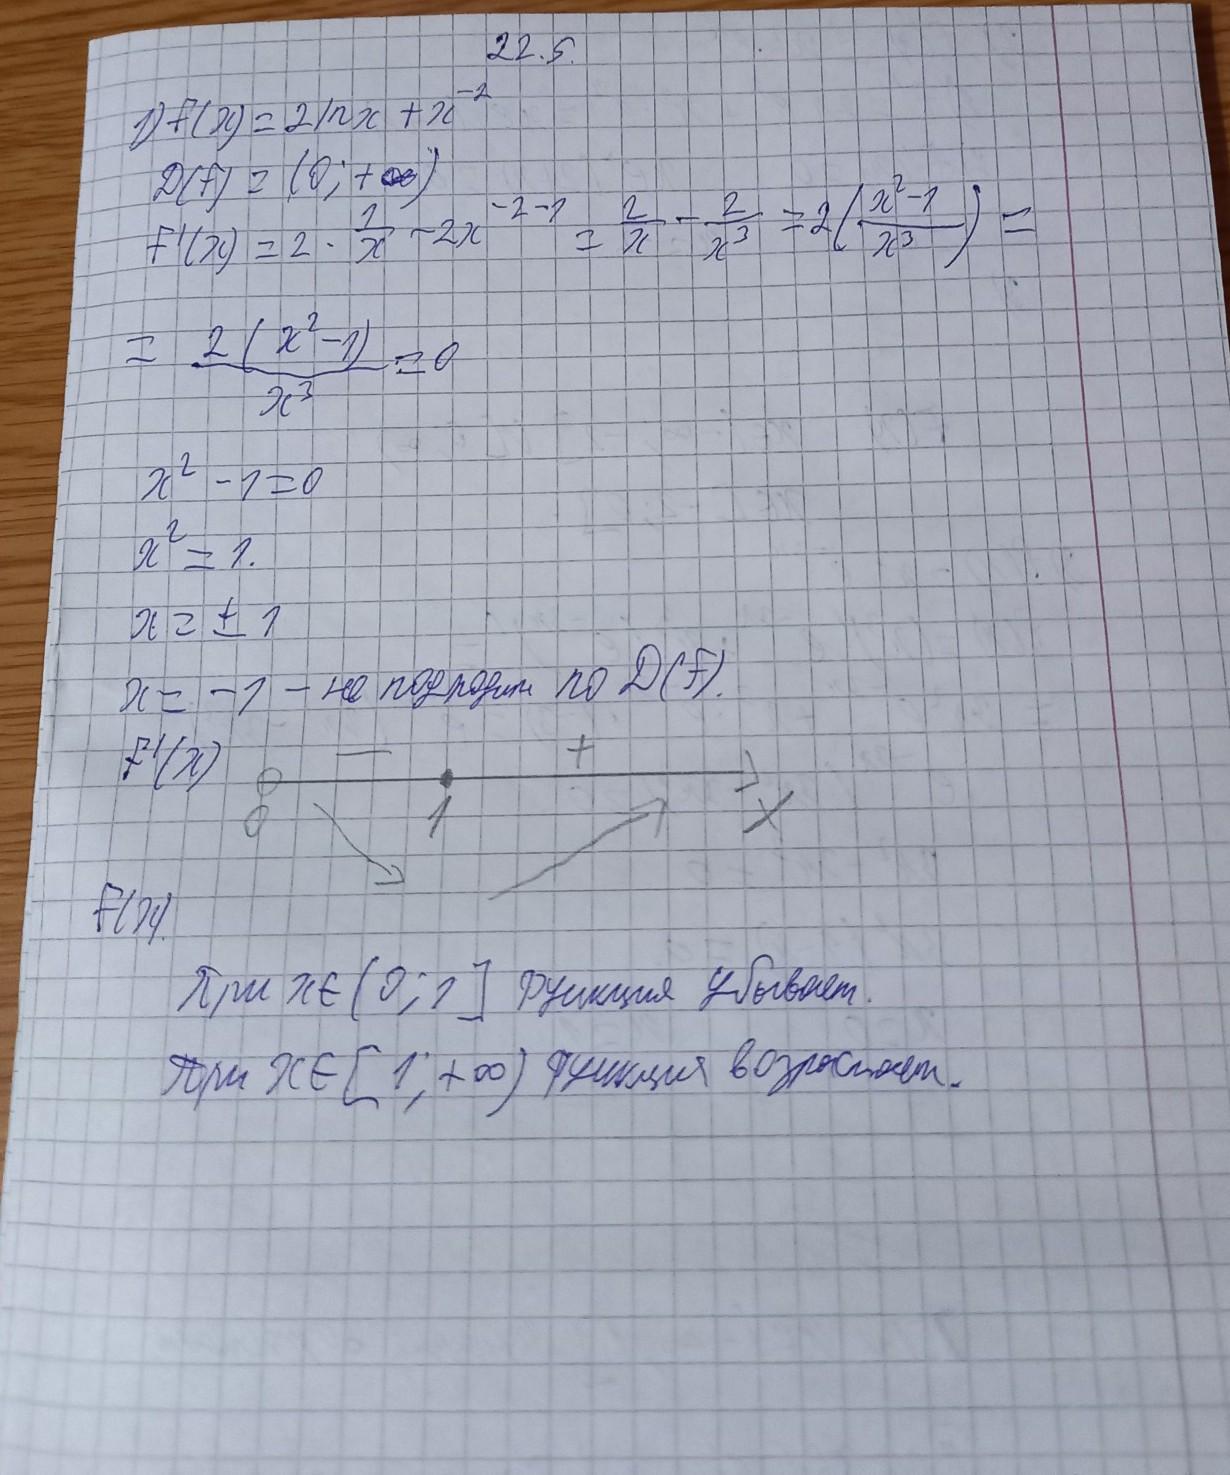 22.5.
1) f(x) = 2lnx + x⁻²
D(f) = (0; +∞)
f'(x) = 2 · 1/x - 2x⁻²⁻¹ = 2/x - 2/x³ = 2(x²-1/x³) =
= 2(x²-1)/x³ = 0
x² - 1 = 0
x² = 1.
x = ± 1
x = -1 - не подходит по D(f).
f'(x) - +
0 1 x
f(x)
При x∈(0; 1] функция убывает.
При x∈[1; +∞) функция возрастает.